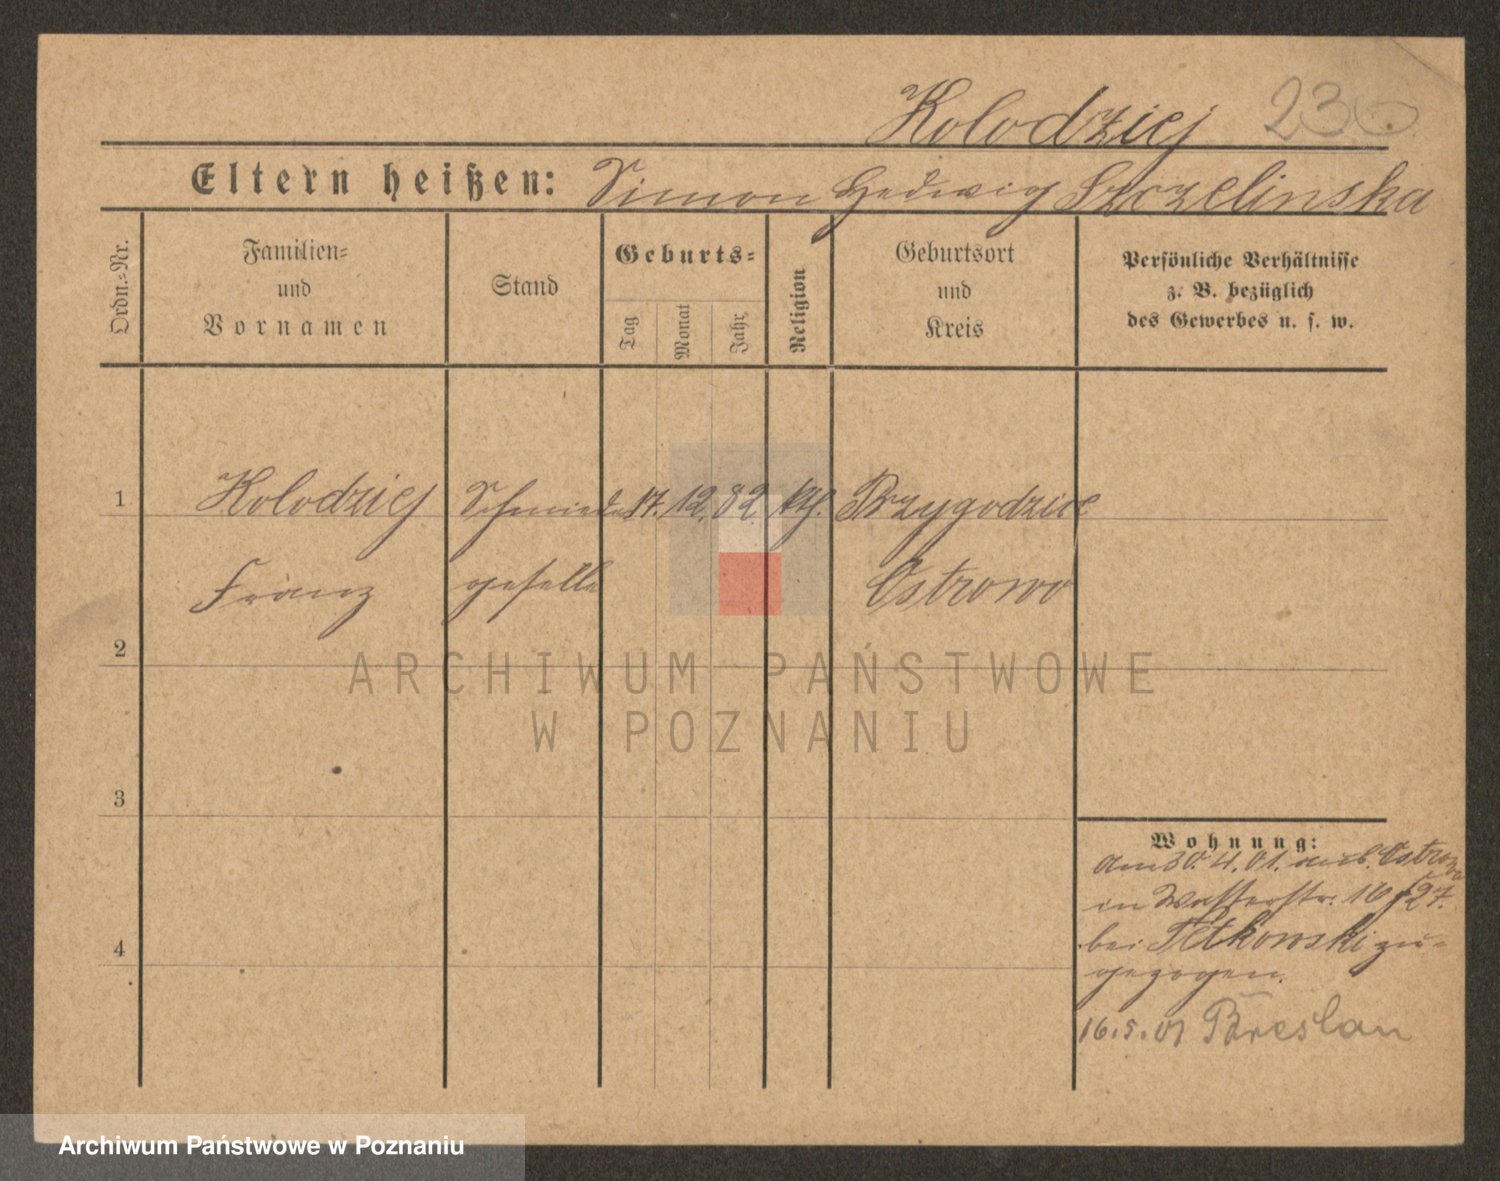 Kolodziej 236
Eltern heißen: Simon Hedwig Szczelinska
Ordn.-Nr.
Familien-
und
Vornamen
Stand
Geburts-
Tag
Monat
Jahr
Religion
Geburtsort
und
Kreis
Persönliche Verhältnisse
z. B. bezüglich
des Gewerbes u. s. w.
1 Kolodziej Schmiede 17. 12. 82. kth. Przygodzice
Franz geselle Ostrowo
2
ARCHIWUM PAŃSTWOWE
W POZNANIU
3
4
Wohnung:
am 30. 4. 01. aus Ostrowo
in Wasserstr. 16 / 27.
bei Petkowski zu-
gezogen.
16.5.01 Breslau
Archiwum Państwowe w Poznaniu